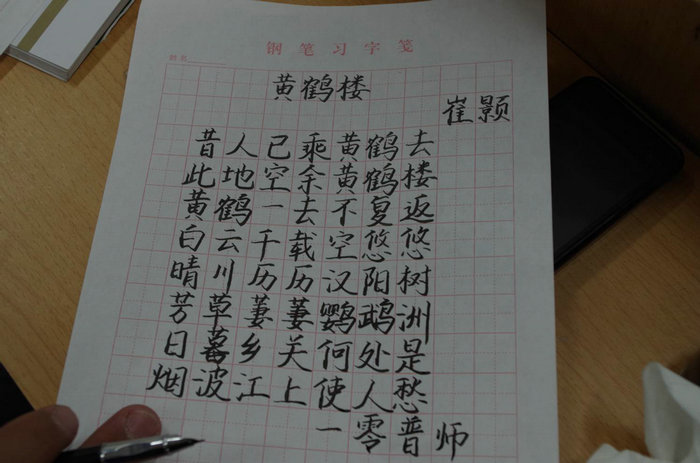 钢笔习字笺
姓名
黄鹤楼
崔颢
昔人已乘黄鹤去
此地空余黄鹤楼
黄鹤一去不复返
白云千载空悠悠
晴川历历汉阳树
芳草萋萋鹦鹉洲
日暮乡关何处是
烟波江上使人愁
一零普师